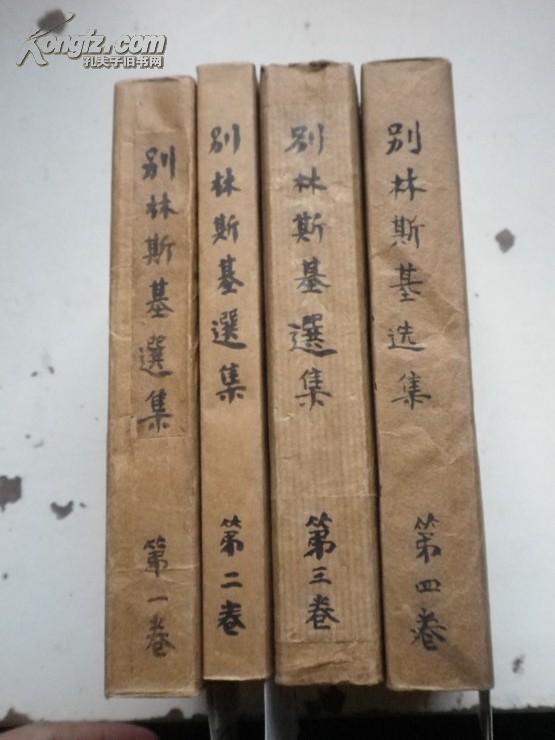 Kongfz.com
孔夫子旧书网
别林斯基選集
第一卷
别林斯基選集
第二卷
别林斯基選集
第三卷
别林斯基选集
第四卷